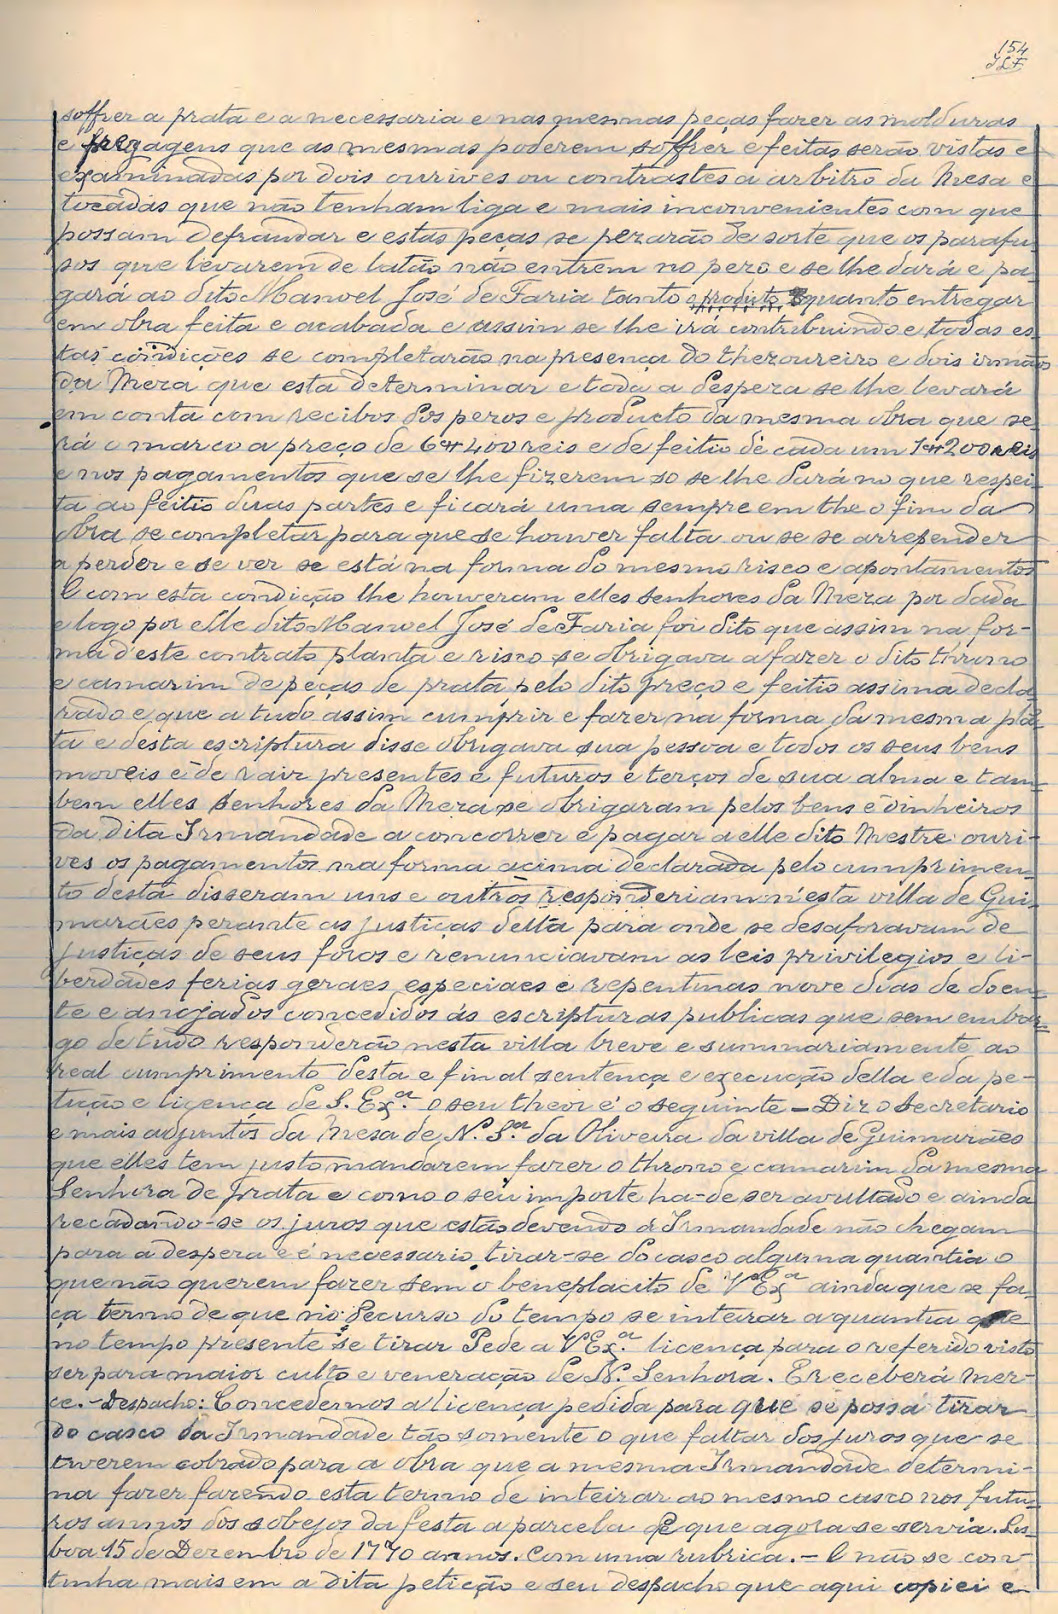 154
JLF
soffrer a prata e a necessaria e nas mesmas peças fazer as molduras
e fregagens que as mesmas poderem soffrer e feitas serão vistas e
examinadas por dois ourives ou contrastes a arbitro da Mesa e
tocadas que não tenham liga e mais inconvenientes com que
possam defraudar e estas peças se pezarão de sorte que os parafu-
sos que levarem de latão não entrem no pezo e se lhe dará e pa-
gará ao dito Manoel José de Faria tanto o produto quanto entregar
em obra feita e acabada e assim se lhe irá contribuindo e todas es-
tas condições se completarão na presença do thezoureiro e dois irmãos
da Meza que esta determinar e toda a despeza se lhe levará
em conta com recibos dos pezos e producto da mesma obra que se-
rá o marco a preço de 6$400 reis e de feitio de cada um 1$200 reis
e nos pagamentos que se lhe fizerem so se lhe dará no que respei-
ta ao feitio duas partes e ficará uma sempre em the o fim da
obra se completar para que se houver falta ou se se arrepender
a perder e se ver se está na forma do mesmo risco e apontamentos
E com esta condição lhe houveram elles senhores da Meza por dada
e logo por elle dito Manoel José de Faria foi dito que assim na for-
ma d'este contrato planta e risco se obrigava a fazer o dito throno
e camarim de peças de prata pelo dito preço e feitio assima decla-
rado e que a tudo assim cumprir e fazer na forma da mesma plã-
ta e desta escriptura disse obrigava sua pessoa e todos os seus bens
moveis e de raiz presentes e futuros e terços de sua alma e tam-
bem elles senhores da Meza se obrigaram pelos bens e dinheiros
da dita Irmandade a concorrer e pagar a elle dito Mestre ouri-
ves os pagamentos na forma acima declarada pelo cumprimen-
to desta disseram uns e outros responderiam n'esta villa de Gui-
marães perante as justiças della para onde se desaforavam de
justiças de seus foros e renunciavam as leis privilegios e li-
berdades ferias geraes especiaes e repentinas nove dias de doen-
te e anojados concedidos ás escripturas publicas que sem embar-
go de tudo responderão nesta villa breve e summariamente ao
real cumprimento desta e final sentença e execução della e da pe-
tição e licença de S. Exª. o seu theor é o seguinte – Diz o Secretario
e mais adjuntos da Mesa de N. Sª. da Oliveira da villa de Guimarães
que elles tem justo mandarem fazer o throno e camarim da mesma
Senhora de prata e como o seu importe ha-de ser avultado e ainda
recadando-se os juros que estão devendo á Irmandade não chegam
para a despeza e é necessario tirar-se do casco alguma quantia o
que não querem fazer sem o beneplacito de V Exª ainda que se fa-
ça termo de que no decurso do tempo se inteirar a quantia que
no tempo presente se tirar Pede a V Exª. licença para o referido visto
ser para maior culto e veneração de N. Senhora. E receberá mer-
ce. – Despacho: Concedemos a licença pedida para que se possa tirar
do casco da Irmandade tão somente o que faltar dos juros que se
tiverem cobrado para a obra que a mesma Irmandade determi-
na fazer fazendo esta termo de inteirar ao mesmo casco nos futu-
ros annos dos sobejos da festa a parcela de que agora se servia. Lis-
boa 15 de Dezembro de 1770 annos. Com uma rubrica. – E não se con-
tinha mais em a dita petição e seu despacho que aqui copiei e